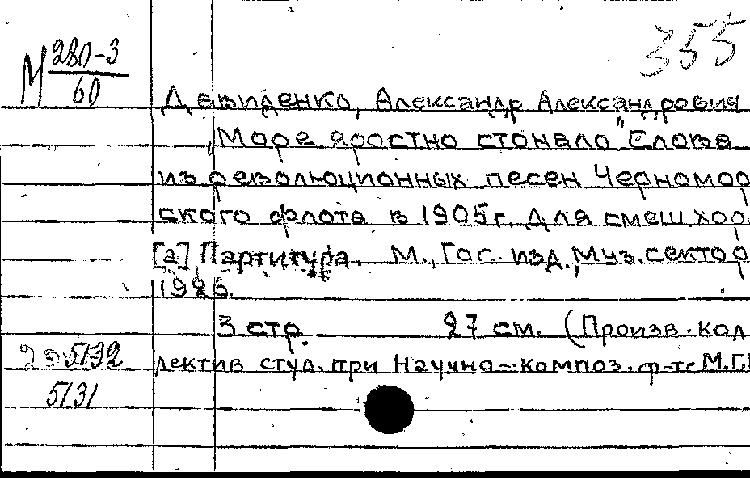 355
М 280-3
60
Давиденко, Александр Александрович
"Море яростно стонало" Слова
из революционных песен Черномор
ского флота в 1905г. Для смеш. хор
[а] Партитура. М., Гос. изд., Муз. сектор
1926.
3 стр. 27 см. (Произв. кол
лектив студ. при Научно-композ. ф-те М.Г.
5132
5131